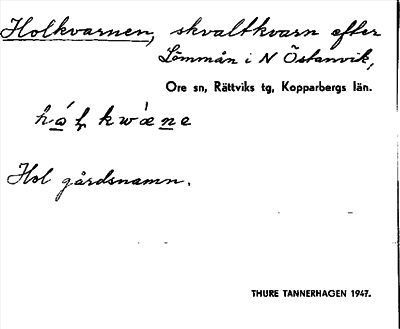 Holkvarnen, skvaltkvarn efter
Lömmån i N Östanvik,
Ore sn, Rättviks tg, Kopparbergs län.
Hol gårdsnamn.
THURE TANNERHAGEN 1947.